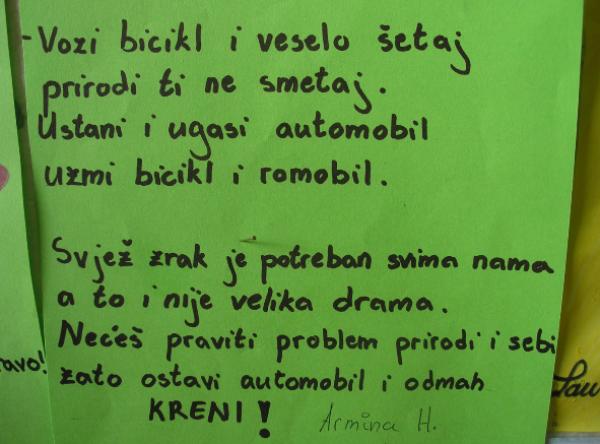 -Vozi bicikl i veselo šetaj
prirodi ti ne smetaj.
Ustani i ugasi automobil
uzmi bicikl i romobil.
Svjež zrak je potreban svima nama
a to i nije velika drama.
Nećeš praviti problem prirodi i sebi
zato ostavi automobil i odmah
KRENI!
Armina H.